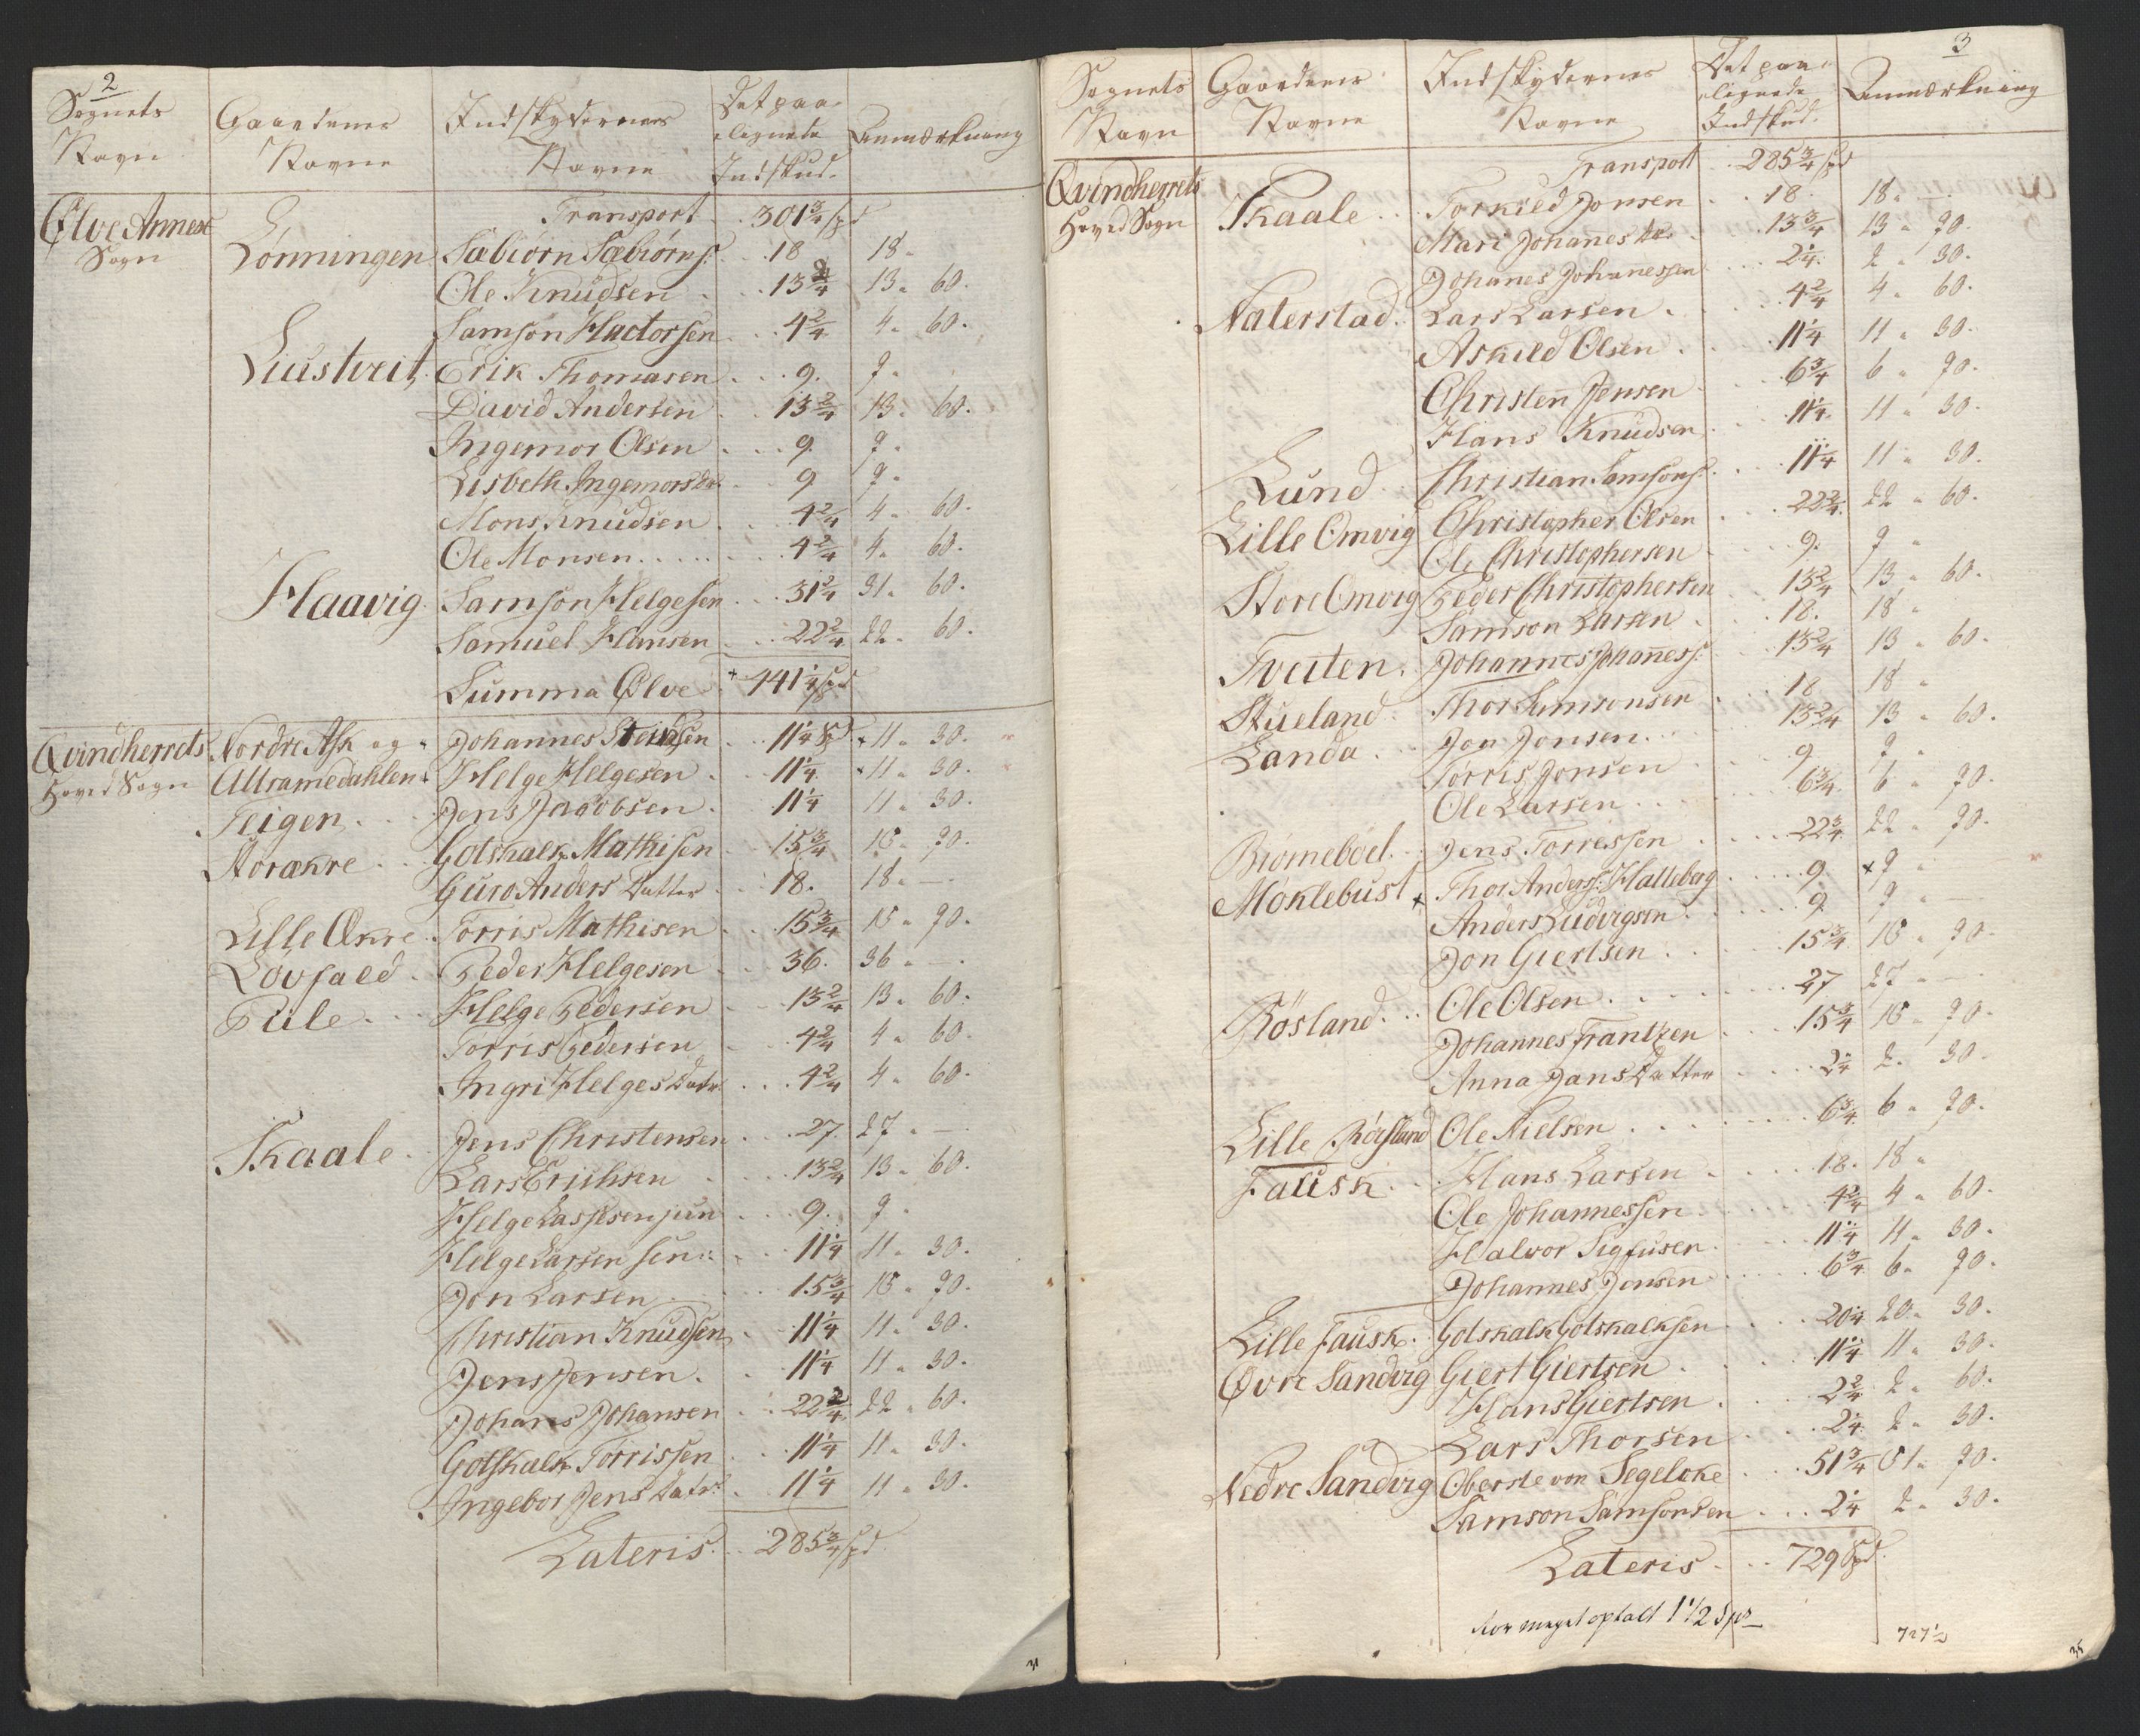 2
Sognets Navn | Gaardenes Navne | Indskydernes Navne | Det paalignede Indskud. | Anmærkning
Ølve Annex Sogn | | Transport | 301 3/4 spd
Lönningen | Sæbiörn Sæbiörns: | 18 | 18 "
Ole Knudsen | 13 2/4 | 13 " 60.
Samson Hactorsen | 4 2/4 | 4 " 60.
Liustveit | Erik Thomasen | 9. | 9 "
David Andersen | 13 2/4 | 13 " 60.
Ingemor Olsen | 9. | 9 "
Lisbeth Ingemorsdr | 9 | 9 "
Mons Knudsen | 4 2/4 | 4 " 60.
Ole Monsen | 4 2/4 | 4 " 60.
Haavig | Samson Helgesen | 31 2/4 | 31 " 60.
Samuel Hansen | 22 2/4 | 22 " 60.
Summa Ølve | 441 1/4 spd
Qvindherrets Hoved Sogn | Nordre Ask og | Johannes Steinsen | 11 1/4 Spd | 11 " 30.
Utsamedahlen | Helge Helgesen | 11 1/4 | 11 " 30.
Teigen | Jens Jacobsen | 11 1/4 | 11 " 30.
Storækre | Gotskalk Mathisen | 15 3/4 | 15 " 90.
Guro Anders Datter | 18. | 18 " —
Lille Ækre | Torris Mathisen | 15 3/4 | 15 " 90.
Lovfald | Peder Helgesen | 36. | 36 " —
Pile | Helge Pedersen | 13 2/4 | 13 " 60.
Torris Pedersen | 4 2/4 | 4 " 60.
Ingri Helges Datr | 4 2/4 | 4 " 60.
Skaale | Jens Christensen | 27. | 27 " —
Lars Erichsen | 13 2/4 | 13 " 60.
Helge Lassesen jun | 9. | 9 "
Helge Larsen sen: | 11 1/4 | 11 " 30.
Jon Larsen | 15 3/4 | 15 " 90.
Christian Knudsen | 11 1/4 | 11 " 30.
Jens Jensen | 11 1/4 | 11 " 30.
Johans Johansen | 22 2/4 | 22 " 60.
Gotskalk Torrissen | 11 1/4 | 11 " 30.
Ingebor Jens Datr: | 11 1/4 | 11 " 30.
Lateris | 285 3/4 spd
3
Sognets Navn | Gaardenes Navne | Indskydernes Navne | Det paalignede Indskud. | Anmærkning
Qvindherrets Hoved Sogn | | Transport | 285 3/4 spd
Skaale | Torkild Jonsen | 18. | 18 "
Mari Johanesdr | 13 3/4 | 13 " 90.
Johanes Johanessen | 2 1/4 | 2 " 30.
Naterstad | Lars Larsen | 4 2/4 | 4 " 60.
Askild Olsen | 11 1/4 | 11 " 30.
Christen Jensen | 6 3/4 | 6 " 90.
Hans Knudsen | 11 1/4 | 11 " 30.
Lund | Christian Samsons: | 11 1/4 | 11 " 30.
Lille Omvig | Christopher Olsen | 22 2/4 | 22 " 60.
Ole Christophersen | 9. | 9 "
Store Omvig | Peder Christophersen | 13 2/4 | 13 " 60.
Samson Larsen | 18. | 18 "
Tveiten | Johannes Johaness: | 13 2/4 | 13 " 60.
Stueland | Thor Samsonsen | 18 | 18 "
Landa | Jon Jonsen | 13 2/4 | 13 " 60.
Torris Jonsen | 9 | 9 "
Ole Larsen | 6 3/4 | 6 " 90.
Biørneböel | Jens Torressen | 22 3/4 | 22 " 90.
Möklebust | Thor Anders: Halleberg | 9 | 9 "
Anders Ludvigsen | 9 | 9 " —
Jon Giertsen | 15 3/4 | 15 " 90.
Rösland | Ole Olsen | 27 | 27 " —
Johannes Frantzen | 15 3/4 | 15 " 90.
Anna Jans Datter | 2 1/4 | 2 " 30.
Lille Rösland | Ole Nielsen | 6 3/4 | 6 " 90.
Fausk | Hans Larsen | 18. | 18 "
Ole Johannessen | 4 2/4 | 4 " 60.
Halvor Sigfusen | 11 1/4 | 11 " 30.
Johannes Jonsen | 6 3/4 | 6 " 90.
Lille Fausk | Gotskalk Gotskalksen | 20 1/4 | 20 " 30.
Øvre Sandvig | Giert Giertsen | 11 1/4 | 11 " 30.
Hans Giertsen | 2 2/4 | 2 " 60.
Lars Thorsen | 2 1/4 | 2 " 30.
Nedre Sandvig | Oberste von Segelcke | 51 3/4 | 51 " 90.
Samson Samsonsen | 2 1/4 | 2 " 30.
Lateris | 729 Spd.
for meget optalt 1 1/2 Spd
727 1/2